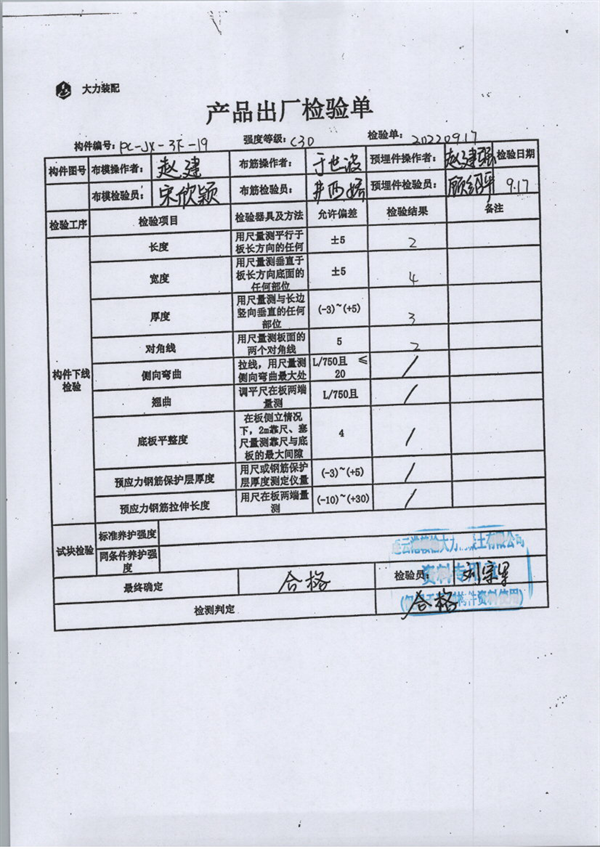 大力装配
产品出厂检验单
构件编号: PC-JX-3F-19 强度等级: C30 检验单: 20220917
构件图号 布模操作者: 赵建 布筋操作者: 于世波 预埋件操作者: 赵建 检验日期
布模检验员: 宋欣颖 布筋检验员: 预埋件检验员: 9.17
检验工序 检验项目 检验器具及方法 允许偏差 检验结果 备注
构件下线检验
长度 用尺量测平行于板长方向的任何 ±5 2
宽度 用尺量测垂直于板长方向底面的任何部位 ±5 4
厚度 用尺量测与长边竖向垂直的任何部位 (-3)~(+5) 3
对角线 用尺量测板面的两个对角线 5 2
侧向弯曲 拉线，用尺量测侧向弯曲最大处 L/750且 ≤20 /
翘曲 调平尺在板两端量测 L/750且 /
底板平整度 在板侧立情况下，2m靠尺、塞尺量测靠尺与底板的最大间隙 4 /
预应力钢筋保护层厚度 用尺或钢筋保护层厚度测定仪量 (-3)~(+5) /
预应力钢筋拉伸长度 用尺在板两端量测 (-10)~(+30) /
试块检验 标准养护强度
同条件养护强度
最终确定 合格 检验员:
检测判定 合格